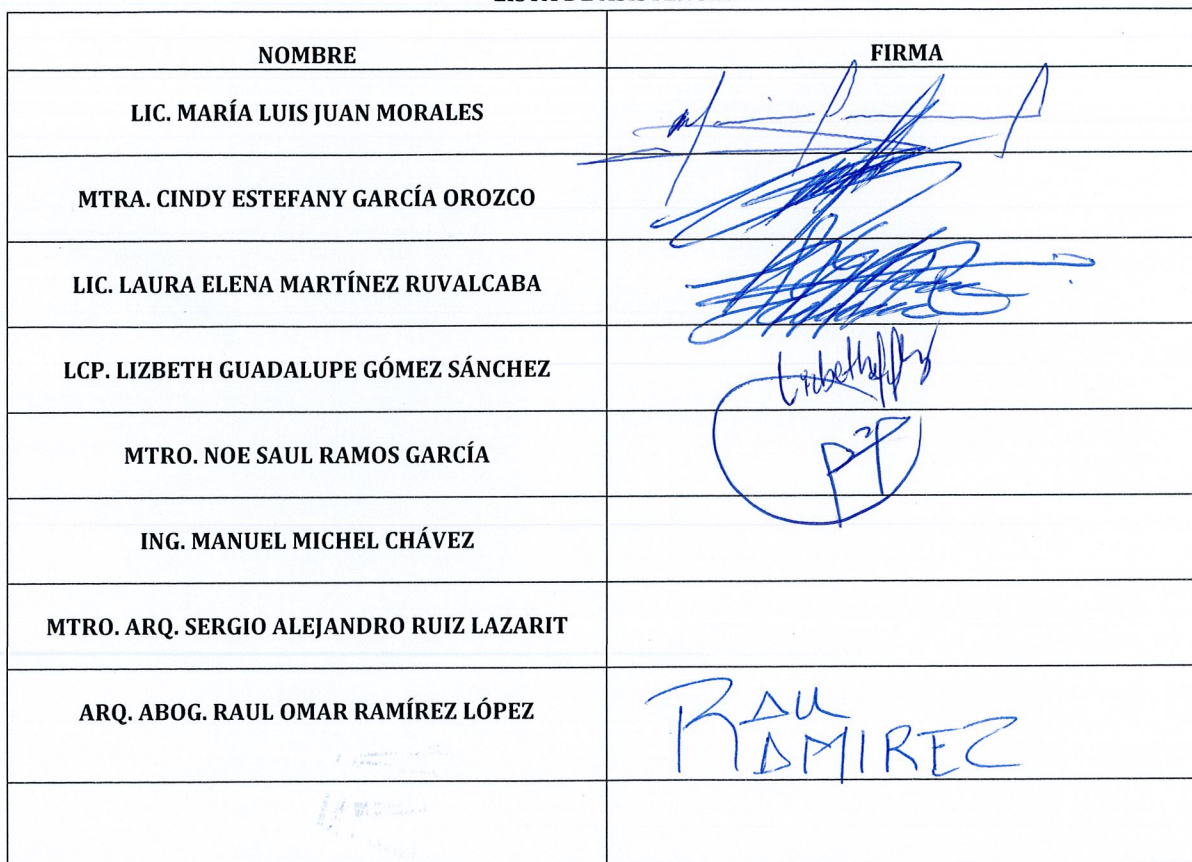 NOMBRE
FIRMA
LIC. MARÍA LUIS JUAN MORALES
MTRA. CINDY ESTEFANY GARCÍA OROZCO
LIC. LAURA ELENA MARTÍNEZ RUVALCABA
LCP. LIZBETH GUADALUPE GÓMEZ SÁNCHEZ
MTRO. NOE SAUL RAMOS GARCÍA
ING. MANUEL MICHEL CHÁVEZ
MTRO. ARQ. SERGIO ALEJANDRO RUIZ LAZARIT
ARQ. ABOG. RAUL OMAR RAMÍREZ LÓPEZ
RAUL
RAMIREZ